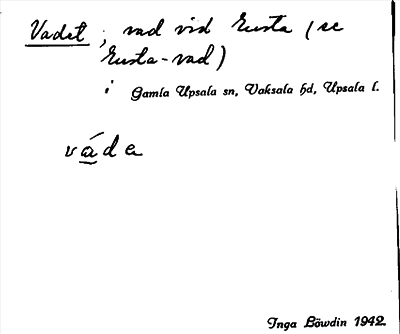 Vadet, vad vid Ensta (se
Ensta-vad)
i Gamla Upsala sn, Vaksala hd, Upsala l.
váde
Inga Löwdin 1942.